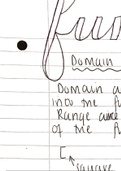 fun
Domain
Domain a
into the f
Range are
of the f
[
square